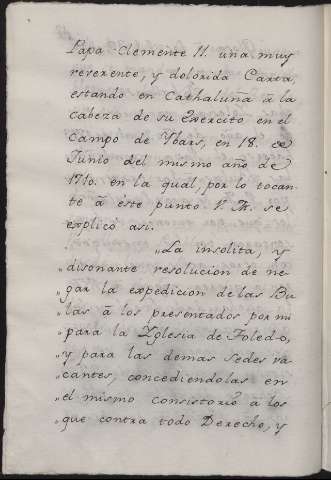 Papa Clemente 11. una muy
reverente, y dolorida Carta,
estando en Cathaluña â la
cabeza de su Exercito en el
Campo de Ybars, en 18. de
Junio del mismo año de
1710. en la qual, por lo tocan-
te â éste punto V. A. se
explicó asi.
„La insolita, y
disonante resolucion de ne-
„gar la expedicion de las Bu-
„las â los presentados por mi
„para la Yglesia de Toledo,
„y para las demas Sedes va-
„cantes, concediendolas en
„el mismo consistorio â los
„que contra todo Derecho, y